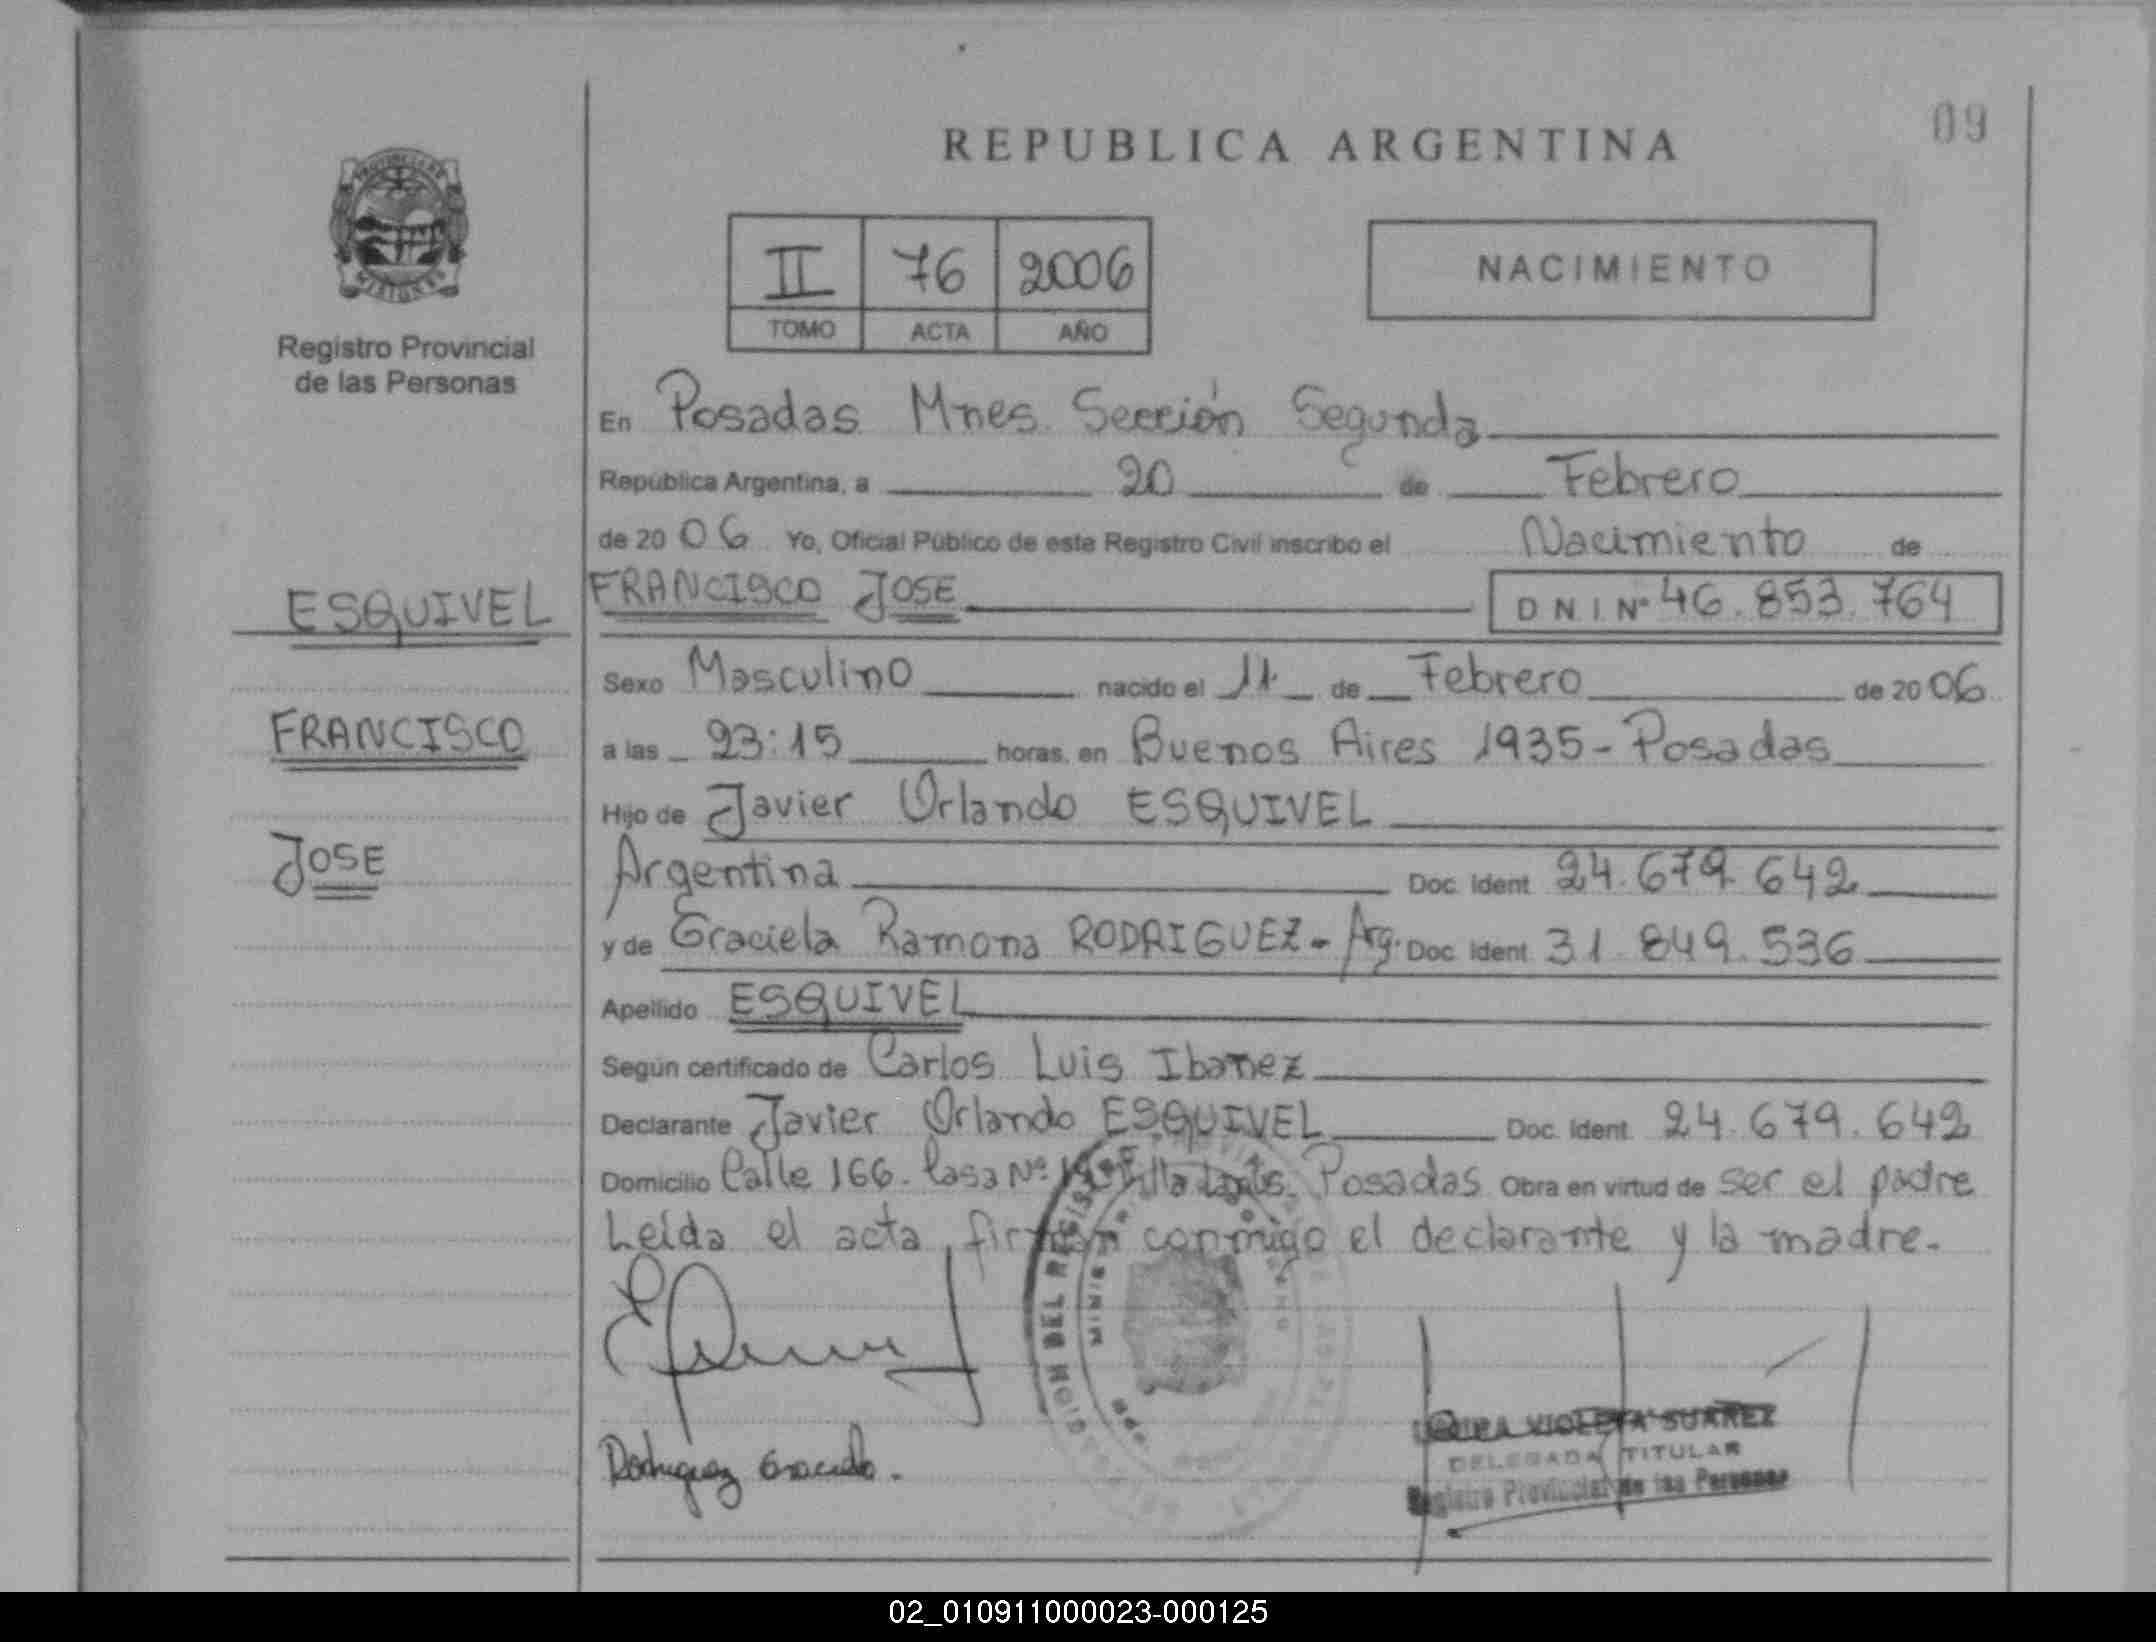 09
REPUBLICA ARGENTINA
II 76 2006
TOMO ACTA AÑO
NACIMIENTO
Registro Provincial
de las Personas
ESQUIVEL
FRANCISCO
JOSE
En Posadas Mnes. Sección Segunda
República Argentina, a 20 de Febrero
de 2006 Yo, Oficial Público de este Registro Civil inscribo el Nacimiento de
FRANCISCO JOSE DNI Nº 46.853.764
Sexo Masculino nacido el 11 de Febrero de 2006
a las 23:15 horas, en Buenos Aires 1935 - Posadas
Hijo de Javier Orlando ESQUIVEL
Argentina Doc. Ident 24.679.642
y de Graciela Ramona RODRIGUEZ - Arg. Doc. Ident 31.849.536
Apellido ESQUIVEL
Según certificado de Carlos Luis Ibanez
Declarante Javier Orlando ESQUIVEL Doc. Ident. 24.679.642
Domicilio Calle 166. Casa Nº Posadas Obra en virtud de ser el padre
Leída el acta, firman conmigo el declarante y la madre.
DEL REGIS
Rodriguez Graciela.
VIOLETA SUAREZ
DELEGADA TITULAR
Registro Provincial de las Personas
02_010911000023-000125